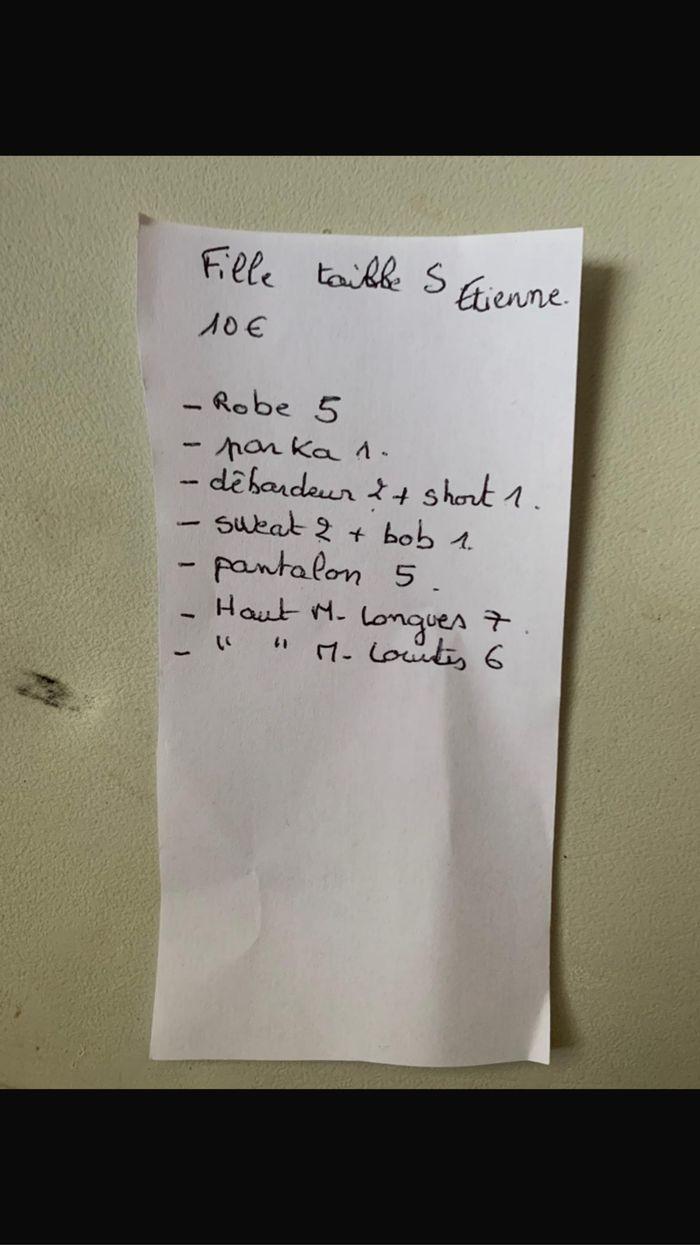 Fille taille S Étienne.
10€
- Robe 5
- parka 1.
- débardeur 2 + short 1.
- sweat 2 + bob 1.
- pantalon 5.
- Haut M- Longues 7.
- " " M- Courtes 6